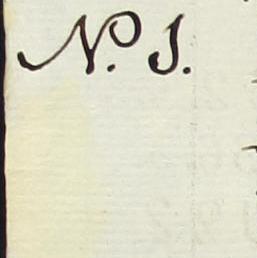 No. 1.